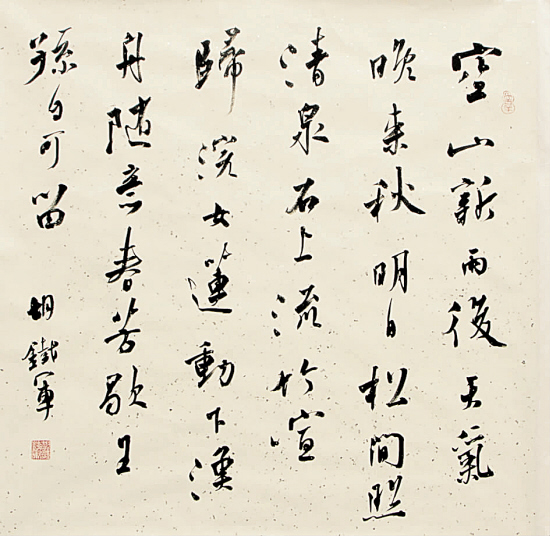 空山新雨後天氣
晚來秋明月松間照
清泉石上流竹喧
歸浣女蓮動下漁
舟隨意春芳歇王
孫自可留 胡鐵軍